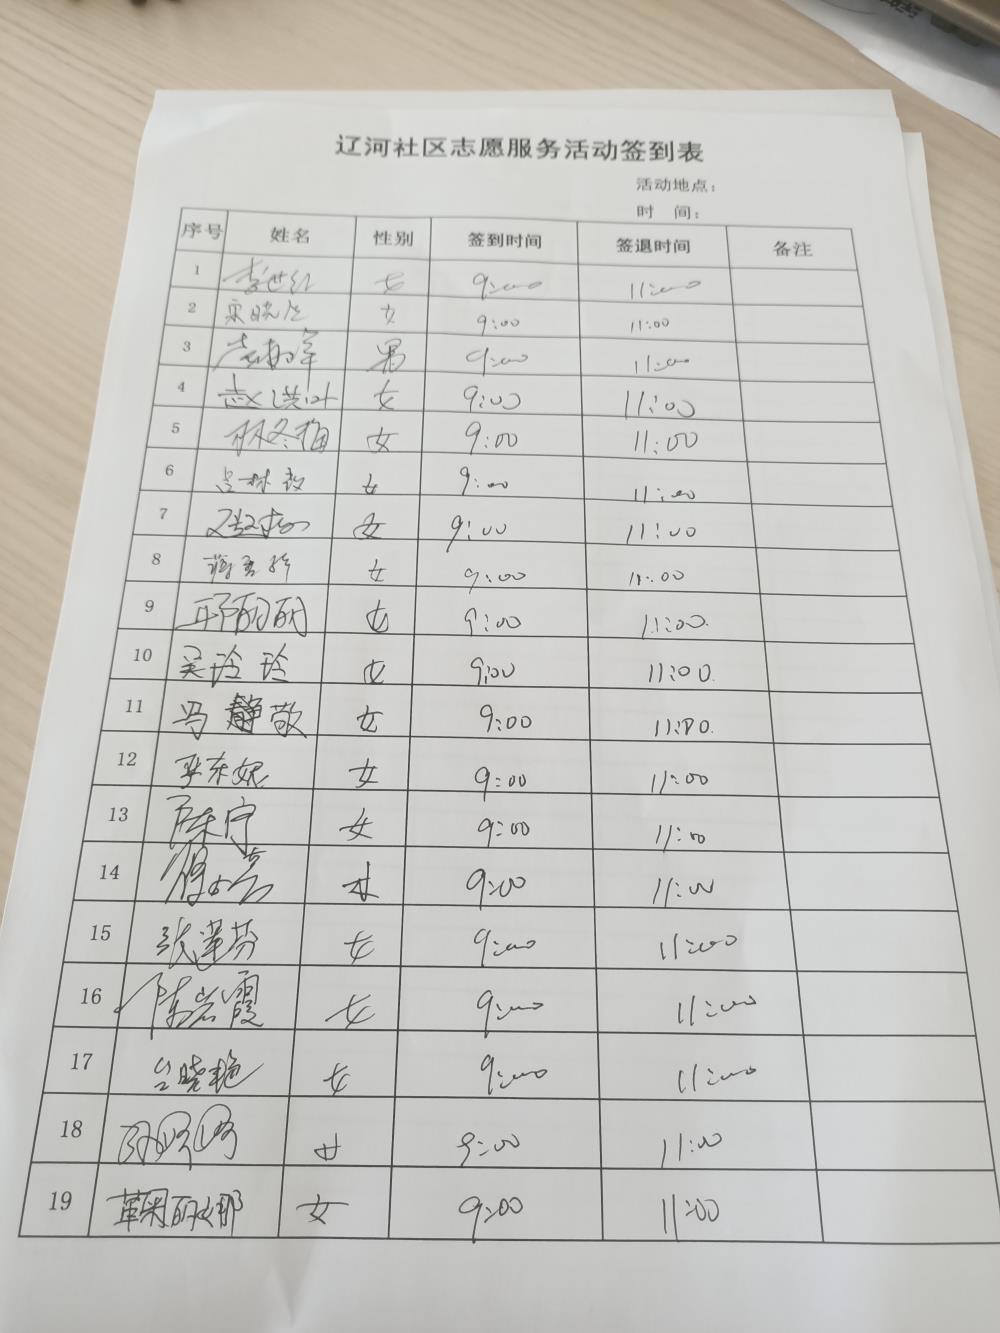 辽河社区志愿服务活动签到表
活动地点：
时 间：
序号 姓名 性别 签到时间 签退时间 备注
1 李世红 女 9:00 11:00
2 宋晓 女 9:00 11:00
3 男 9:00 11:00
4 赵洪叶 女 9:00 11:00
5 林冬梅 女 9:00 11:00
6 吕林 女 9:00 11:00
7 女 9:00 11:00
8 女 9:00 11:00
9 丽丽 女 9:00 11:00
10 吴玲玲 女 9:00 11:00
11 冯静敬 女 9:00 11:00
12 李东妮 女 9:00 11:00
13 陈宁 女 9:00 11:00
14 女 9:00 11:00
15 张莲芬 女 9:00 11:00
16 陈岩霞 女 9:00 11:00
17 台晓艳 女 9:00 11:00
18 女 9:00 11:00
19 鞠丽娜 女 9:00 11:00